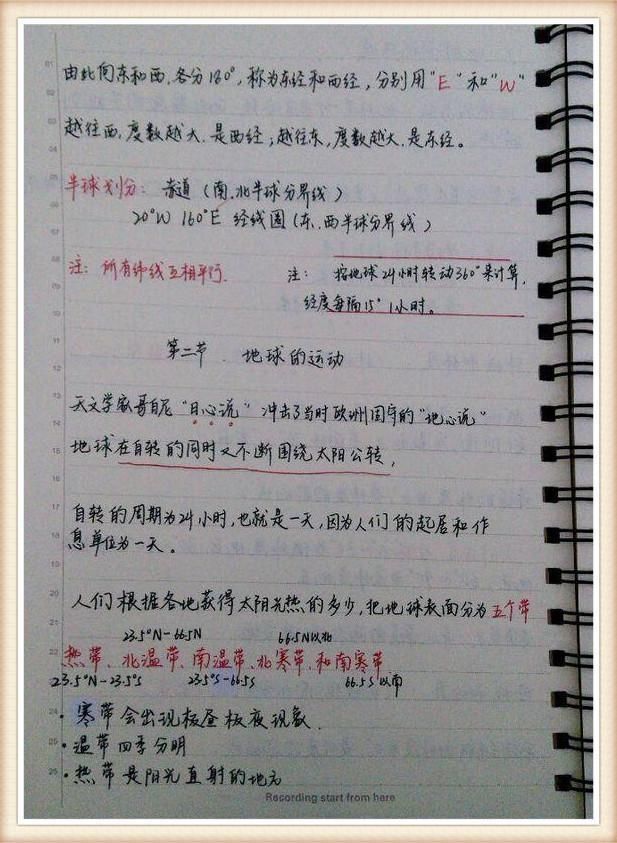 由此向东和西,各分180°,称为东经和西经,分别用"E"和"W"
越往西,度数越大,是西经;越往东,度数越大,是东经。
半球划分:赤道(南、北半球分界线)
20°W 160°E 经线圈(东、西半球分界线)
注:所有纬线互相平行.
注:按地球24小时转动360°来计算,
经度每隔15° 1小时。
第二节 地球的运动
天文学家哥白尼"日心说"冲击了当时欧洲国家的"地心说"
地球在自转的同时又不断围绕太阳公转,
自转的周期为24小时,也就是一天,因为人们的起居和作
息单位为一天。
人们根据各地获得太阳光热的多少,把地球表面分为五个带
23.5°N-66.5N 66.5N以北
热带、北温带、南温带、北寒带、和南寒带
23.5°N-23.5°S 23.5°S-66.5S 66.5S以南
·寒带会出现极昼极夜现象.
·温带四季分明
·热带是阳光直射的地方
01
02
03
04
05
06
07
08
09
10
11
12
13
14
15
16
17
18
19
20
21
22
23
24
25
26
Recording start from here